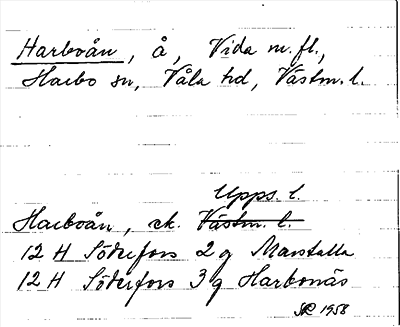 Harboån, å, Vida m.fl.,
Harbo sn, Våla hd, Västm. l.
Upps. l.
Harboån, ek. Västm. l.
12 H Söderfors 2 g Marstalla
12 H Söderfors 3 g Harbonäs
1958